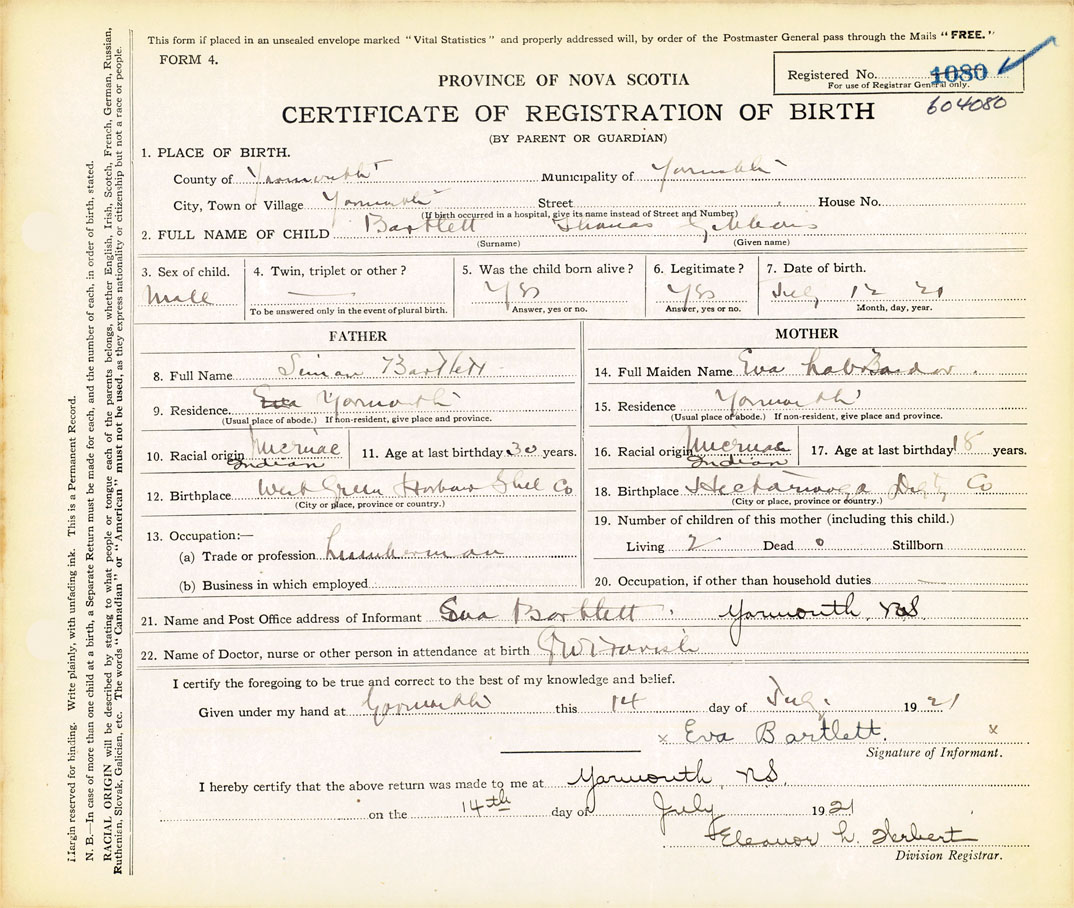 This form if placed in an unsealed envelope marked "Vital Statistics" and properly addressed will, by order of the Postmaster General pass through the Mails "FREE."
FORM 4.
Registered No. 1080
For use of Registrar General only.
604080
PROVINCE OF NOVA SCOTIA
CERTIFICATE OF REGISTRATION OF BIRTH
(BY PARENT OR GUARDIAN)
1. PLACE OF BIRTH.
County of Yarmouth Municipality of Yarmouth
City, Town or Village Yarmouth Street House No.
(If birth occurred in a hospital, give its name instead of Street and Number)
2. FULL NAME OF CHILD Bartlett Thomas
(Surname) (Given name)
3. Sex of child. 4. Twin, triplet or other? 5. Was the child born alive? 6. Legitimate? 7. Date of birth.
Male — Yes Yes July 12 21
To be answered only in the event of plural birth. Answer, yes or no. Answer, yes or no. Month, day, year.
FATHER
8. Full Name Simon Bartlett
9. Residence Eva Yarmouth
(Usual place of abode.) If non-resident, give place and province.
10. Racial origin Micmac Indian 11. Age at last birthday 30 years.
12. Birthplace West Green Harbour Shel Co
(City or place, province or country.)
13. Occupation:—
(a) Trade or profession Lumberman
(b) Business in which employed
MOTHER
14. Full Maiden Name Eva
15. Residence Yarmouth
(Usual place of abode.) If non-resident, give place and province.
16. Racial origin Micmac Indian 17. Age at last birthday 18 years.
18. Birthplace Hectanooga Digby Co
(City or place, province or country.)
19. Number of children of this mother (including this child.)
Living 2 Dead 0 Stillborn
20. Occupation, if other than household duties —
21. Name and Post Office address of Informant Eva Bartlett, Yarmouth, N.S.
22. Name of Doctor, nurse or other person in attendance at birth
I certify the foregoing to be true and correct to the best of my knowledge and belief.
Given under my hand at Yarmouth this 14 day of July 1921
x Eva Bartlett. x
Signature of Informant.
I hereby certify that the above return was made to me at Yarmouth, N.S.
on the 14th day of July 1921
Eleanor L. Herbert
Division Registrar.
Margin reserved for binding. Write plainly, with unfading ink. This is a Permanent Record.
N. B.—In case of more than one child at a birth, a Separate Return must be made for each, and the number of each, in order of birth, stated.
RACIAL ORIGIN will be described by stating to what people or tongue each of the parents belongs, whether English, Irish, Scotch, French, German, Russian,
Ruthenian, Slovak, Galician, etc. The words "Canadian" or "American" must not be used, as they express nationality or citizenship but not a race or people.